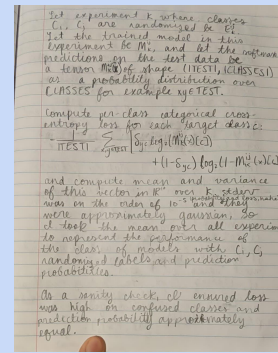 Let experiment k, where classes
Ci, Cj are randomised be Ek.
Let the trained model in this
experiment be M, and let the softmax
predictions on the test data be
a tensor M(x) of shape (|TEST|, |CLASSES|)
as a probability distribution over
CLASSES for example x,y ∈ TEST.
Compute per class categorical cross-
entropy loss for each target class c:
1/|TEST| Σ x,y∈TEST [δyc log2(M(x)[c])
+ (1-δyc) log2(1-M(x)[c])]
and compute mean and variance
of this vector in over k. stderr
was on the order of 10 and they
were approximately gaussian, so
I took the mean over all experiments
to represent the performance of
the class of models with Ci, Cj
randomised labels and prediction
probabilities.
As a sanity check, I ensured loss
was high on confused classes and
prediction probability approximately
equal.